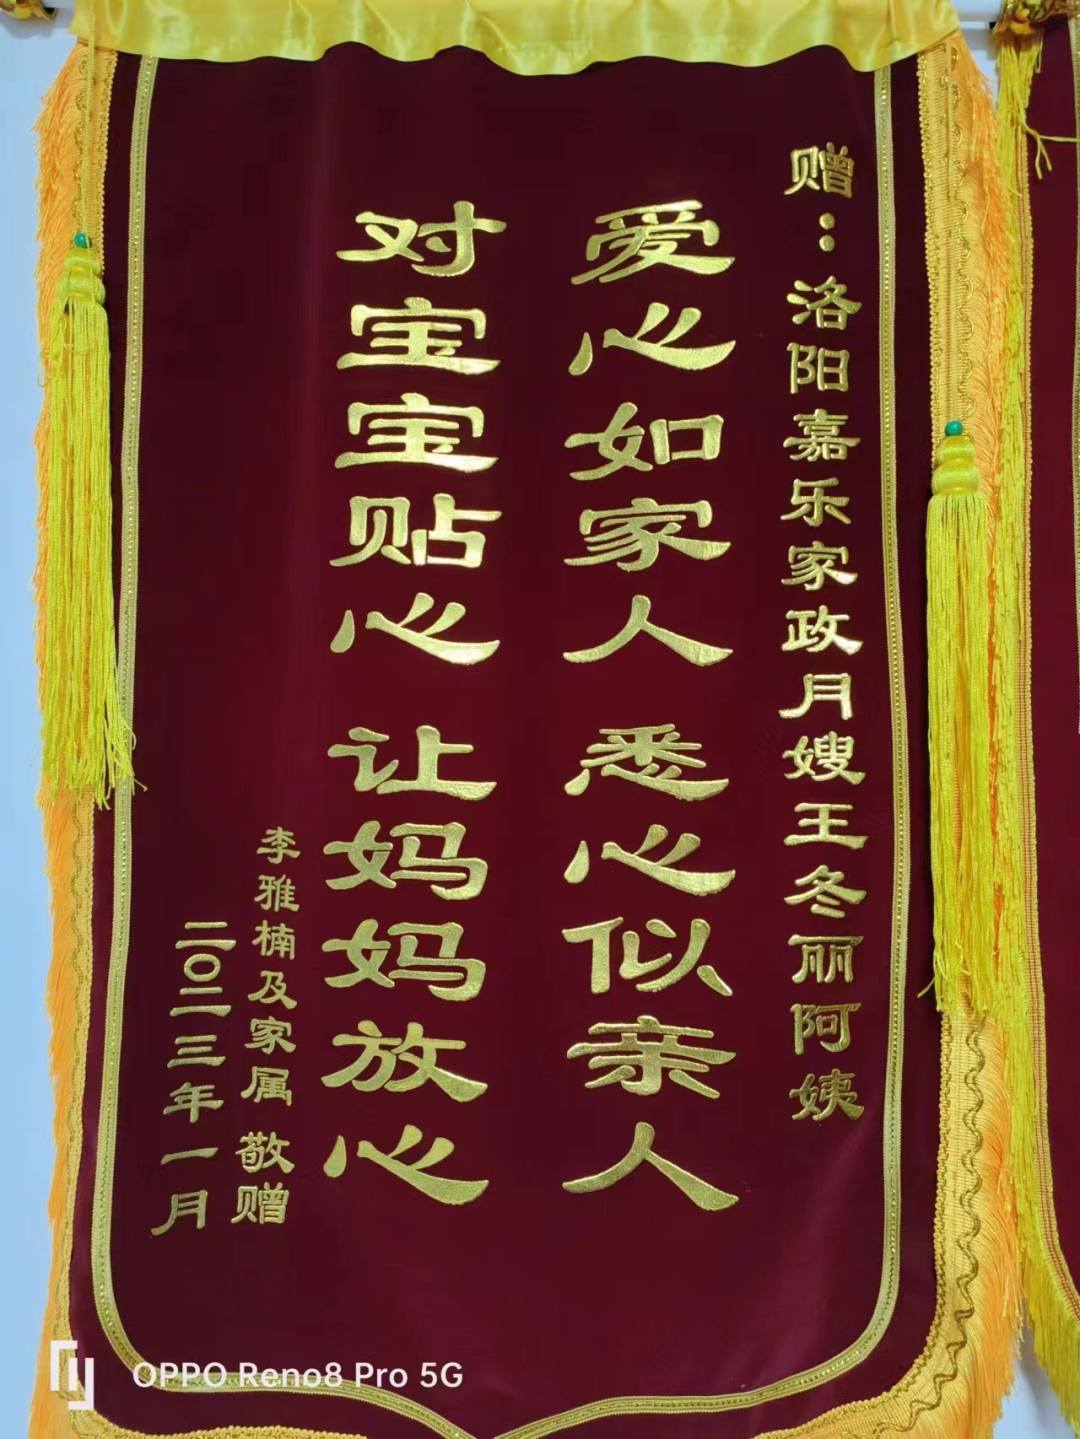 赠：洛阳嘉乐家政月嫂王冬丽阿姨
爱心如家人 悉心似亲人
对宝宝贴心 让妈妈放心
李雅楠及家属 敬赠
二〇二三年一月
OPPO Reno8 Pro 5G